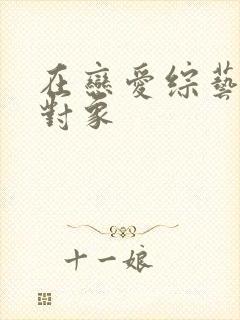 在戀愛綜藝
對象
十一娘